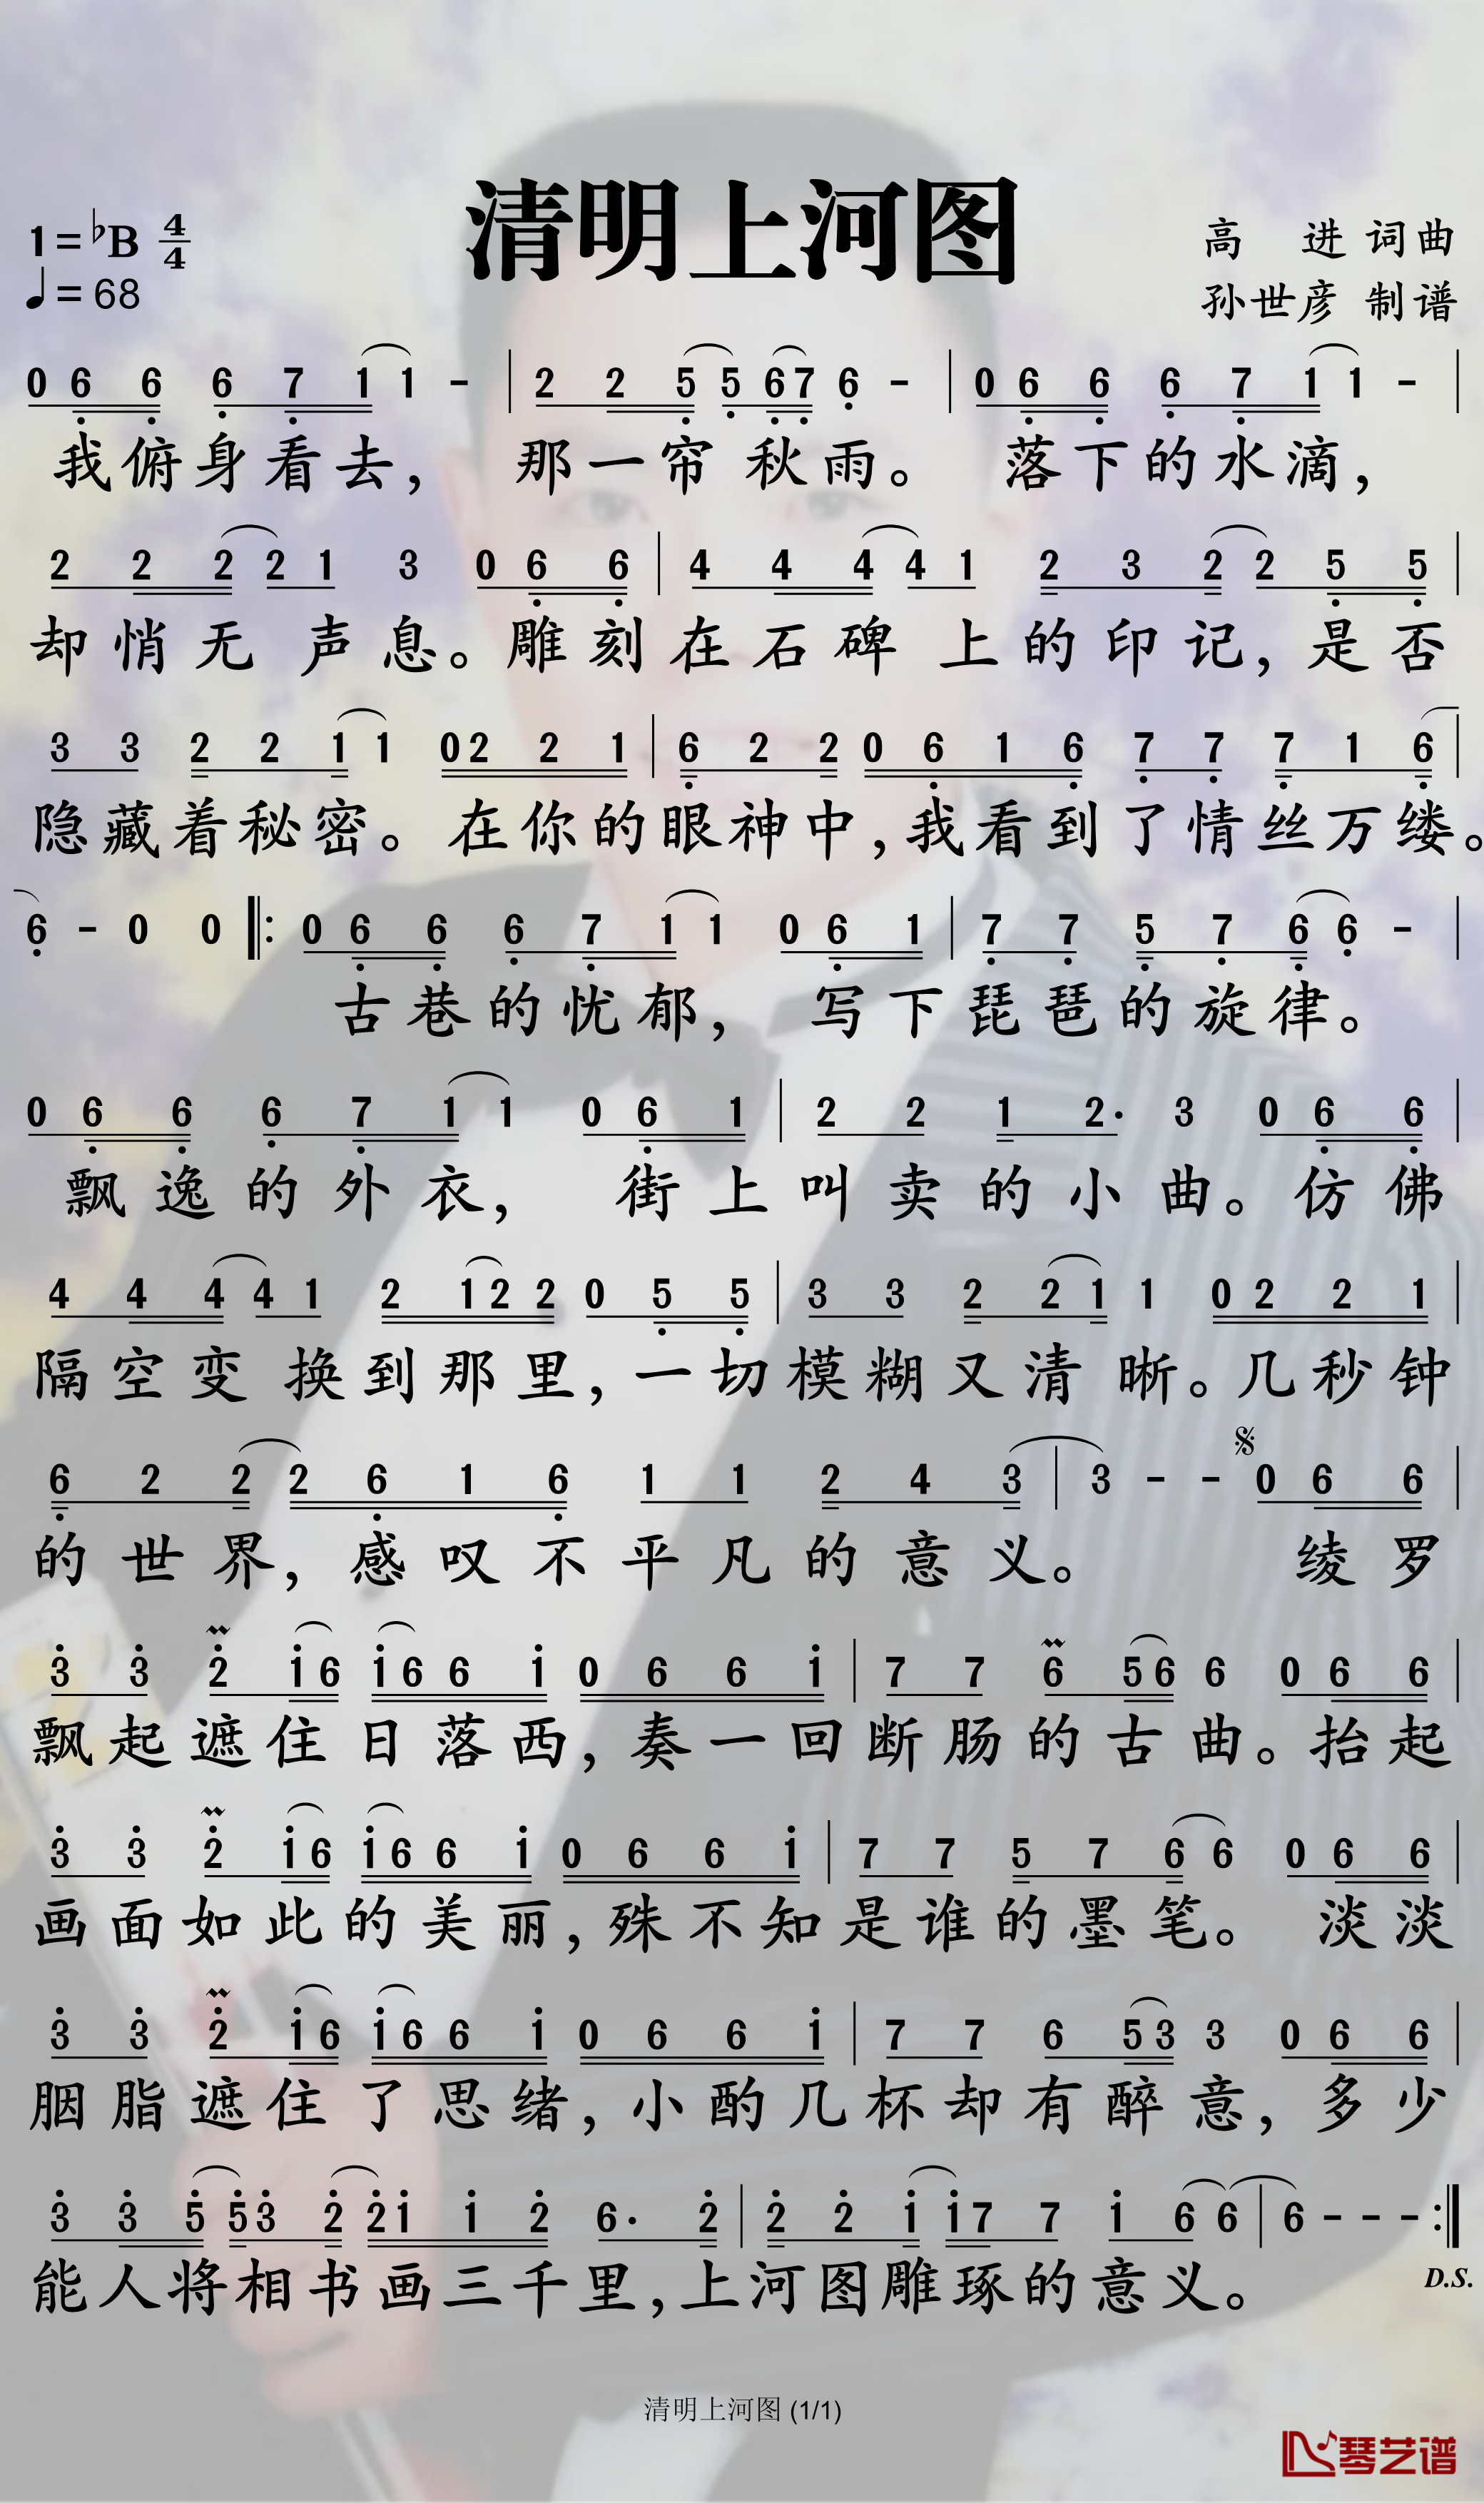 清明上河图
1=♭B 4/4
♩=68
高 进 词曲
孙世彦 制谱
0 6 6 6 7 1 1 - | 2 2 5 5 6 7 6 - | 0 6 6 6 7 1 1 - |
我俯身看去， 那一帘秋雨。 落下的水滴，
2 2 2 2 1 3 0 6 6 | 4 4 4 4 1 2 3 2 2 5 5 |
却悄无声息。雕刻在石碑上的印记，是否
3 3 2 2 1 1 0 2 2 1 | 6 2 2 0 6 1 6 7 7 7 1 6 |
隐藏着秘密。在你的眼神中，我看到了情丝万缕。
6 - 0 0 |: 0 6 6 6 7 1 1 0 6 1 | 7 7 5 7 6 6 - |
古巷的忧郁， 写下琵琶的旋律。
0 6 6 6 7 1 1 0 6 1 | 2 2 1 2· 3 0 6 6 |
飘逸的外衣， 街上叫卖的小曲。仿佛
4 4 4 4 1 2 1 2 2 0 5 5 | 3 3 2 2 1 1 0 2 2 1 |
隔空变换到那里，一切模糊又清晰。几秒钟
6 2 2 2 6 1 6 1 1 2 4 3 | 3 - - 𝄋 0 6 6 |
的世界，感叹不平凡的意义。 绫罗
3 3 2 1 6 1 6 6 1 0 6 6 1 | 7 7 6 5 6 6 0 6 6 |
飘起遮住日落西，奏一回断肠的古曲。抬起
3 3 2 1 6 1 6 6 1 0 6 6 1 | 7 7 5 7 6 6 0 6 6 |
画面如此的美丽，殊不知是谁的墨笔。 淡淡
3 3 2 1 6 1 6 6 1 0 6 6 1 | 7 7 6 5 3 3 0 6 6 |
胭脂遮住了思绪，小酌几杯却有醉意，多少
3 3 5 5 3 2 2 1 1 2 6· 2 | 2 2 1 1 7 7 1 6 6 | 6 - - - :|
能人将相书画三千里，上河图雕琢的意义。
D.S.
清明上河图 (1/1)
琴艺谱